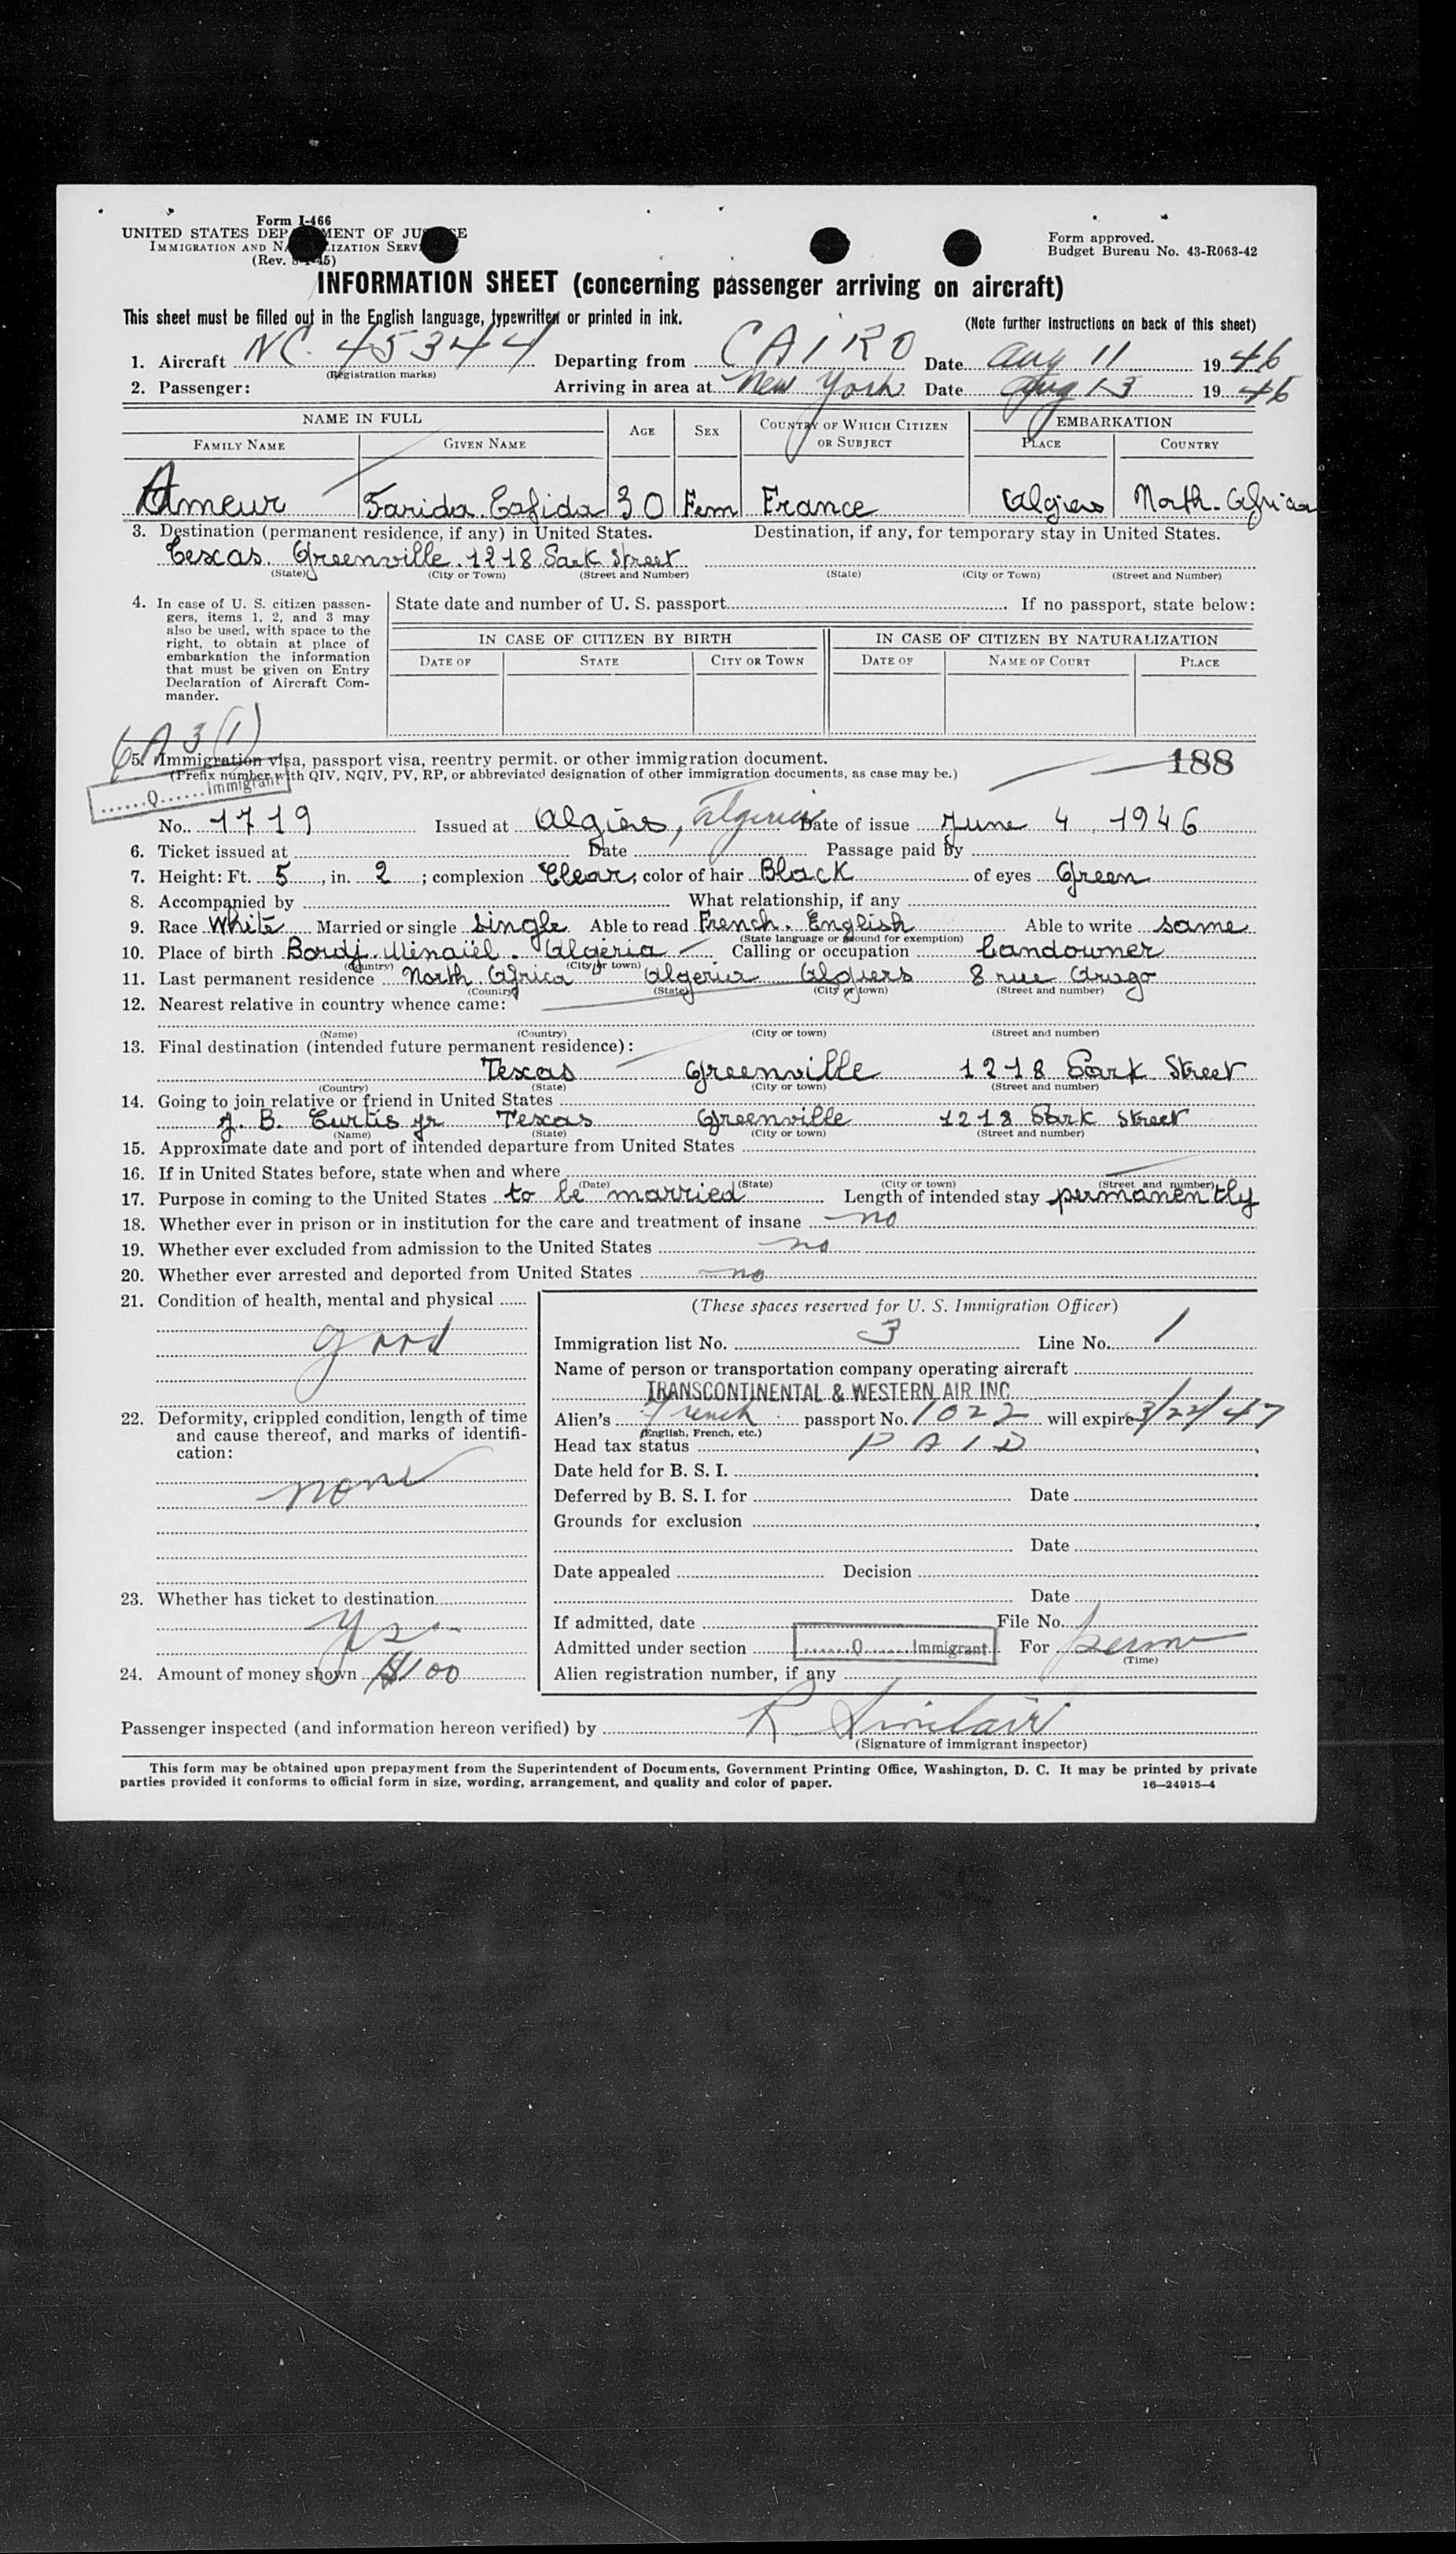 Form I-466
UNITED STATES DEPARTMENT OF JUSTICE
IMMIGRATION AND NATURALIZATION SERVICE
(Rev. 8-1-45)
Form approved.
Budget Bureau No. 43-R063-42
INFORMATION SHEET (concerning passenger arriving on aircraft)
This sheet must be filled out in the English language, typewritten or printed in ink.
(Note further instructions on back of this sheet)
1. Aircraft NC. 45344 Departing from CAIRO Date Aug 11 1946
(Registration marks)
2. Passenger: Arriving in area at New York Date Aug 13 1946
NAME IN FULL AGE SEX COUNTRY OF WHICH CITIZEN OR SUBJECT EMBARKATION
FAMILY NAME GIVEN NAME PLACE COUNTRY
Ameur Farida 30 Fem France Algiers North-Africa
3. Destination (permanent residence, if any) in United States. Destination, if any, for temporary stay in United States.
Texas Greenville 1218 Park Street
(State) (City or Town) (Street and Number) (State) (City or Town) (Street and Number)
4. In case of U. S. citizen passen-
gers, items 1, 2, and 3 may
also be used, with space to the
right, to obtain at place of
embarkation the information
that must be given on Entry
Declaration of Aircraft Com-
mander.
State date and number of U. S. passport If no passport, state below:
IN CASE OF CITIZEN BY BIRTH IN CASE OF CITIZEN BY NATURALIZATION
DATE OF STATE CITY OR TOWN DATE OF NAME OF COURT PLACE
6A3(1)
5. Immigration visa, passport visa, reentry permit. or other immigration document.
188
(Prefix number with QIV, NQIV, PV, RP, or abbreviated designation of other immigration documents, as case may be.)
......Q......Immigrant
No. 1719 Issued at Algiers, Algeria Date of issue June 4 1946
6. Ticket issued at Date Passage paid by
7. Height: Ft. 5, in. 2; complexion Clear; color of hair Black of eyes Green
8. Accompanied by What relationship, if any
9. Race White Married or single single Able to read French. English Able to write same
(State language or ground for exemption)
10. Place of birth Bordj. Menaïel. Algeria Calling or occupation Landowner
(Country) (City or town)
11. Last permanent residence North Africa Algeria Algiers 8 rue Arago
(Country) (State) (City or town) (Street and number)
12. Nearest relative in country whence came:
(Name) (Country) (City or town) (Street and number)
13. Final destination (intended future permanent residence):
Texas Greenville 1218 Park Street
(Country) (State) (City or town) (Street and number)
14. Going to join relative or friend in United States
J. B. Curtis jr Texas Greenville 1218 Park Street
(Name) (State) (City or town) (Street and number)
15. Approximate date and port of intended departure from United States
16. If in United States before, state when and where
(Date) (State) (City or town) (Street and number)
17. Purpose in coming to the United States to be married Length of intended stay permanently
18. Whether ever in prison or in institution for the care and treatment of insane no
19. Whether ever excluded from admission to the United States no
20. Whether ever arrested and deported from United States no
21. Condition of health, mental and physical
good
22. Deformity, crippled condition, length of time
and cause thereof, and marks of identifi-
cation:
none
23. Whether has ticket to destination
yes
24. Amount of money shown $100
(These spaces reserved for U. S. Immigration Officer)
Immigration list No. 3 Line No. 1
Name of person or transportation company operating aircraft
TRANSCONTINENTAL & WESTERN AIR INC
Alien's French passport No. 1022 will expire 3/22/47
(English, French, etc.)
Head tax status PAID
Date held for B. S. I.
Deferred by B. S. I. for Date
Grounds for exclusion
Date
Date appealed Decision
Date
If admitted, date File No.
Admitted under section ......Q......Immigrant For perm
(Time)
Alien registration number, if any
Passenger inspected (and information hereon verified) by R Sinclair
(Signature of immigrant inspector)
This form may be obtained upon prepayment from the Superintendent of Documents, Government Printing Office, Washington, D. C. It may be printed by private
parties provided it conforms to official form in size, wording, arrangement, and quality and color of paper.
16—24915-4